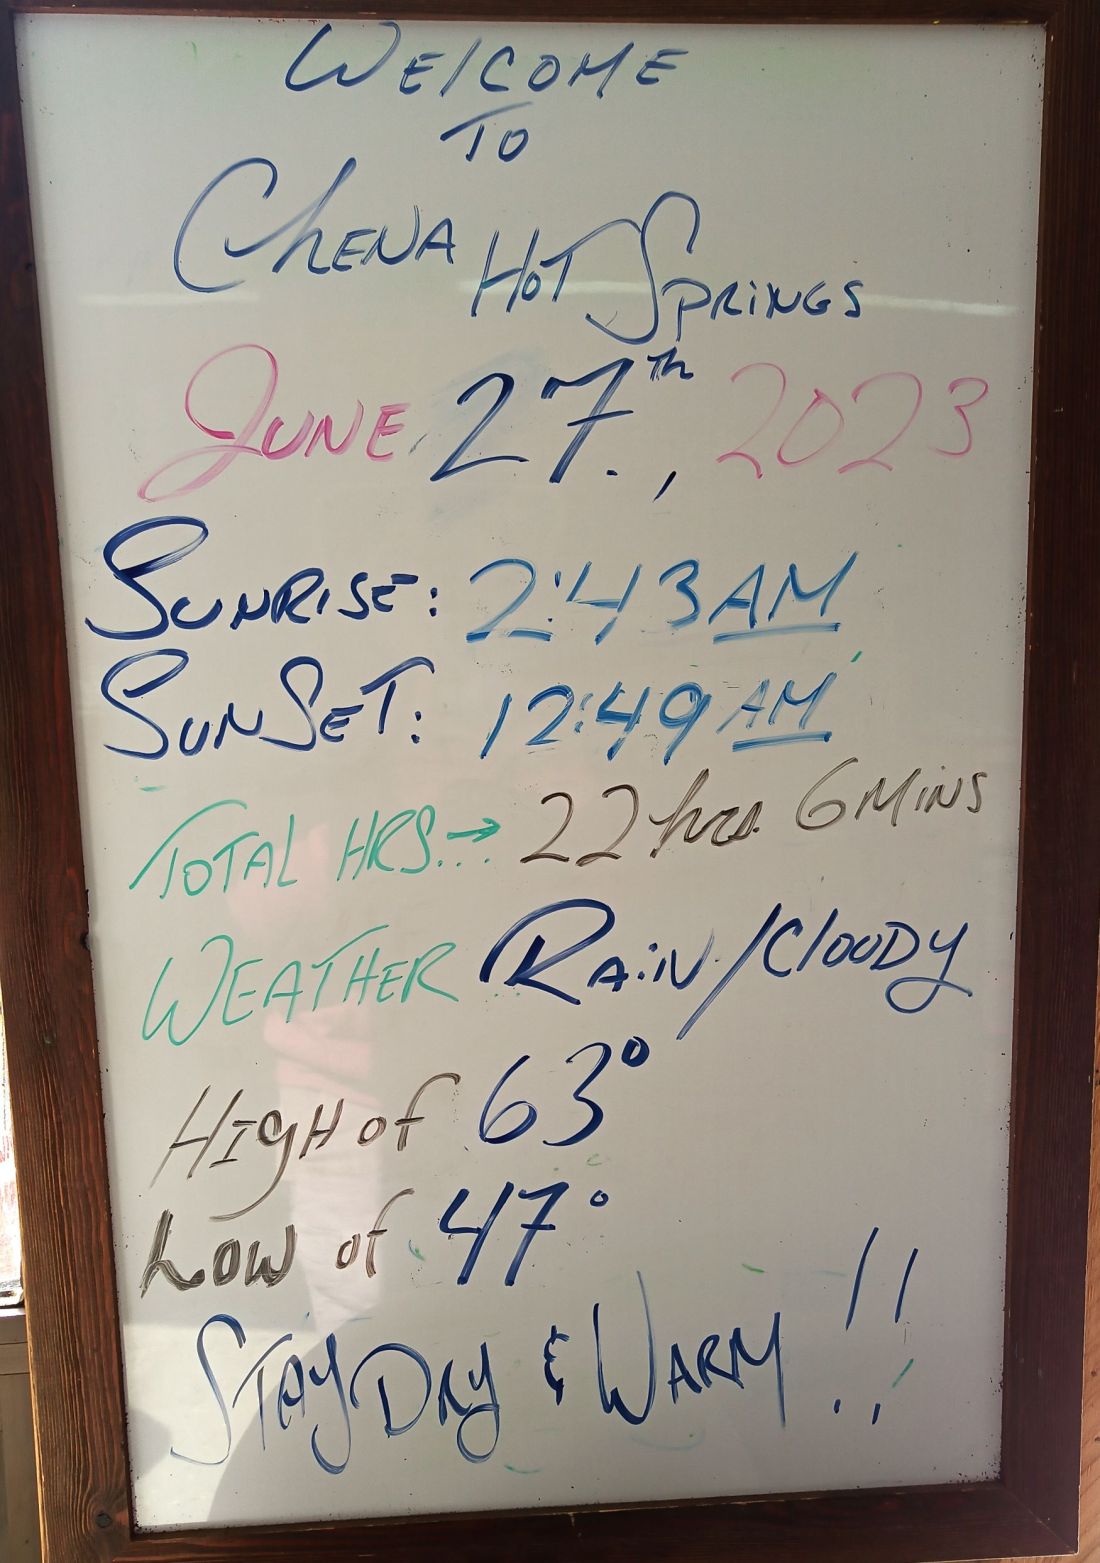 WElCOME
TO
ChENA HOT SPRiNGS
JUNE 27.Th, 2023
SUNRISE: 2:43AM
SUNSET: 12:49AM
TOTAL HRS..→ 22 hrs. 6 MiNS
WEATHER RAiN/ClOUDY
HIgH of 63°
LOW of 47°
STAY DRY & WARM !!